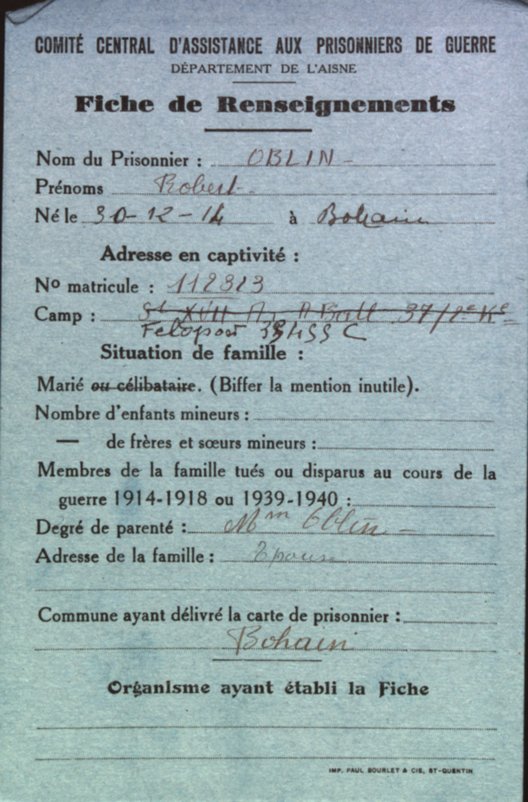 COMITÉ CENTRAL D'ASSISTANCE AUX PRISONNIERS DE GUERRE
DÉPARTEMENT DE L'AISNE
Fiche de Renseignements
Nom du Prisonnier : OBLIN
Prénoms Robert
Né le 30-12-14 à Bohain
Adresse en captivité :
No matricule : 112313
Camp : St XVII A, Batt. 37/2e Kie
35499 C
Situation de famille :
Marié ou célibataire. (Biffer la mention inutile).
Nombre d'enfants mineurs :
— de frères et sœurs mineurs :
Membres de la famille tués ou disparus au cours de la
guerre 1914-1918 ou 1939-1940 :
Degré de parenté : Mm Oblin
Adresse de la famille : Epouse
Commune ayant délivré la carte de prisonnier :
Bohain
Organisme ayant établi la Fiche
IMP. PAUL BOURLET & CIE, ST-QUENTIN